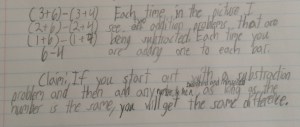 (3+6)-(3+4) Each time in the picture I
(2+6)-(2+4) see an addition problems that are
(1+6)-(1+4) being subtracted. Each time you
6-4 are adding one to each bar.
Claim, If you start out with subtraction
problem and then add any as long as the
number is the same, you will get the same difference.